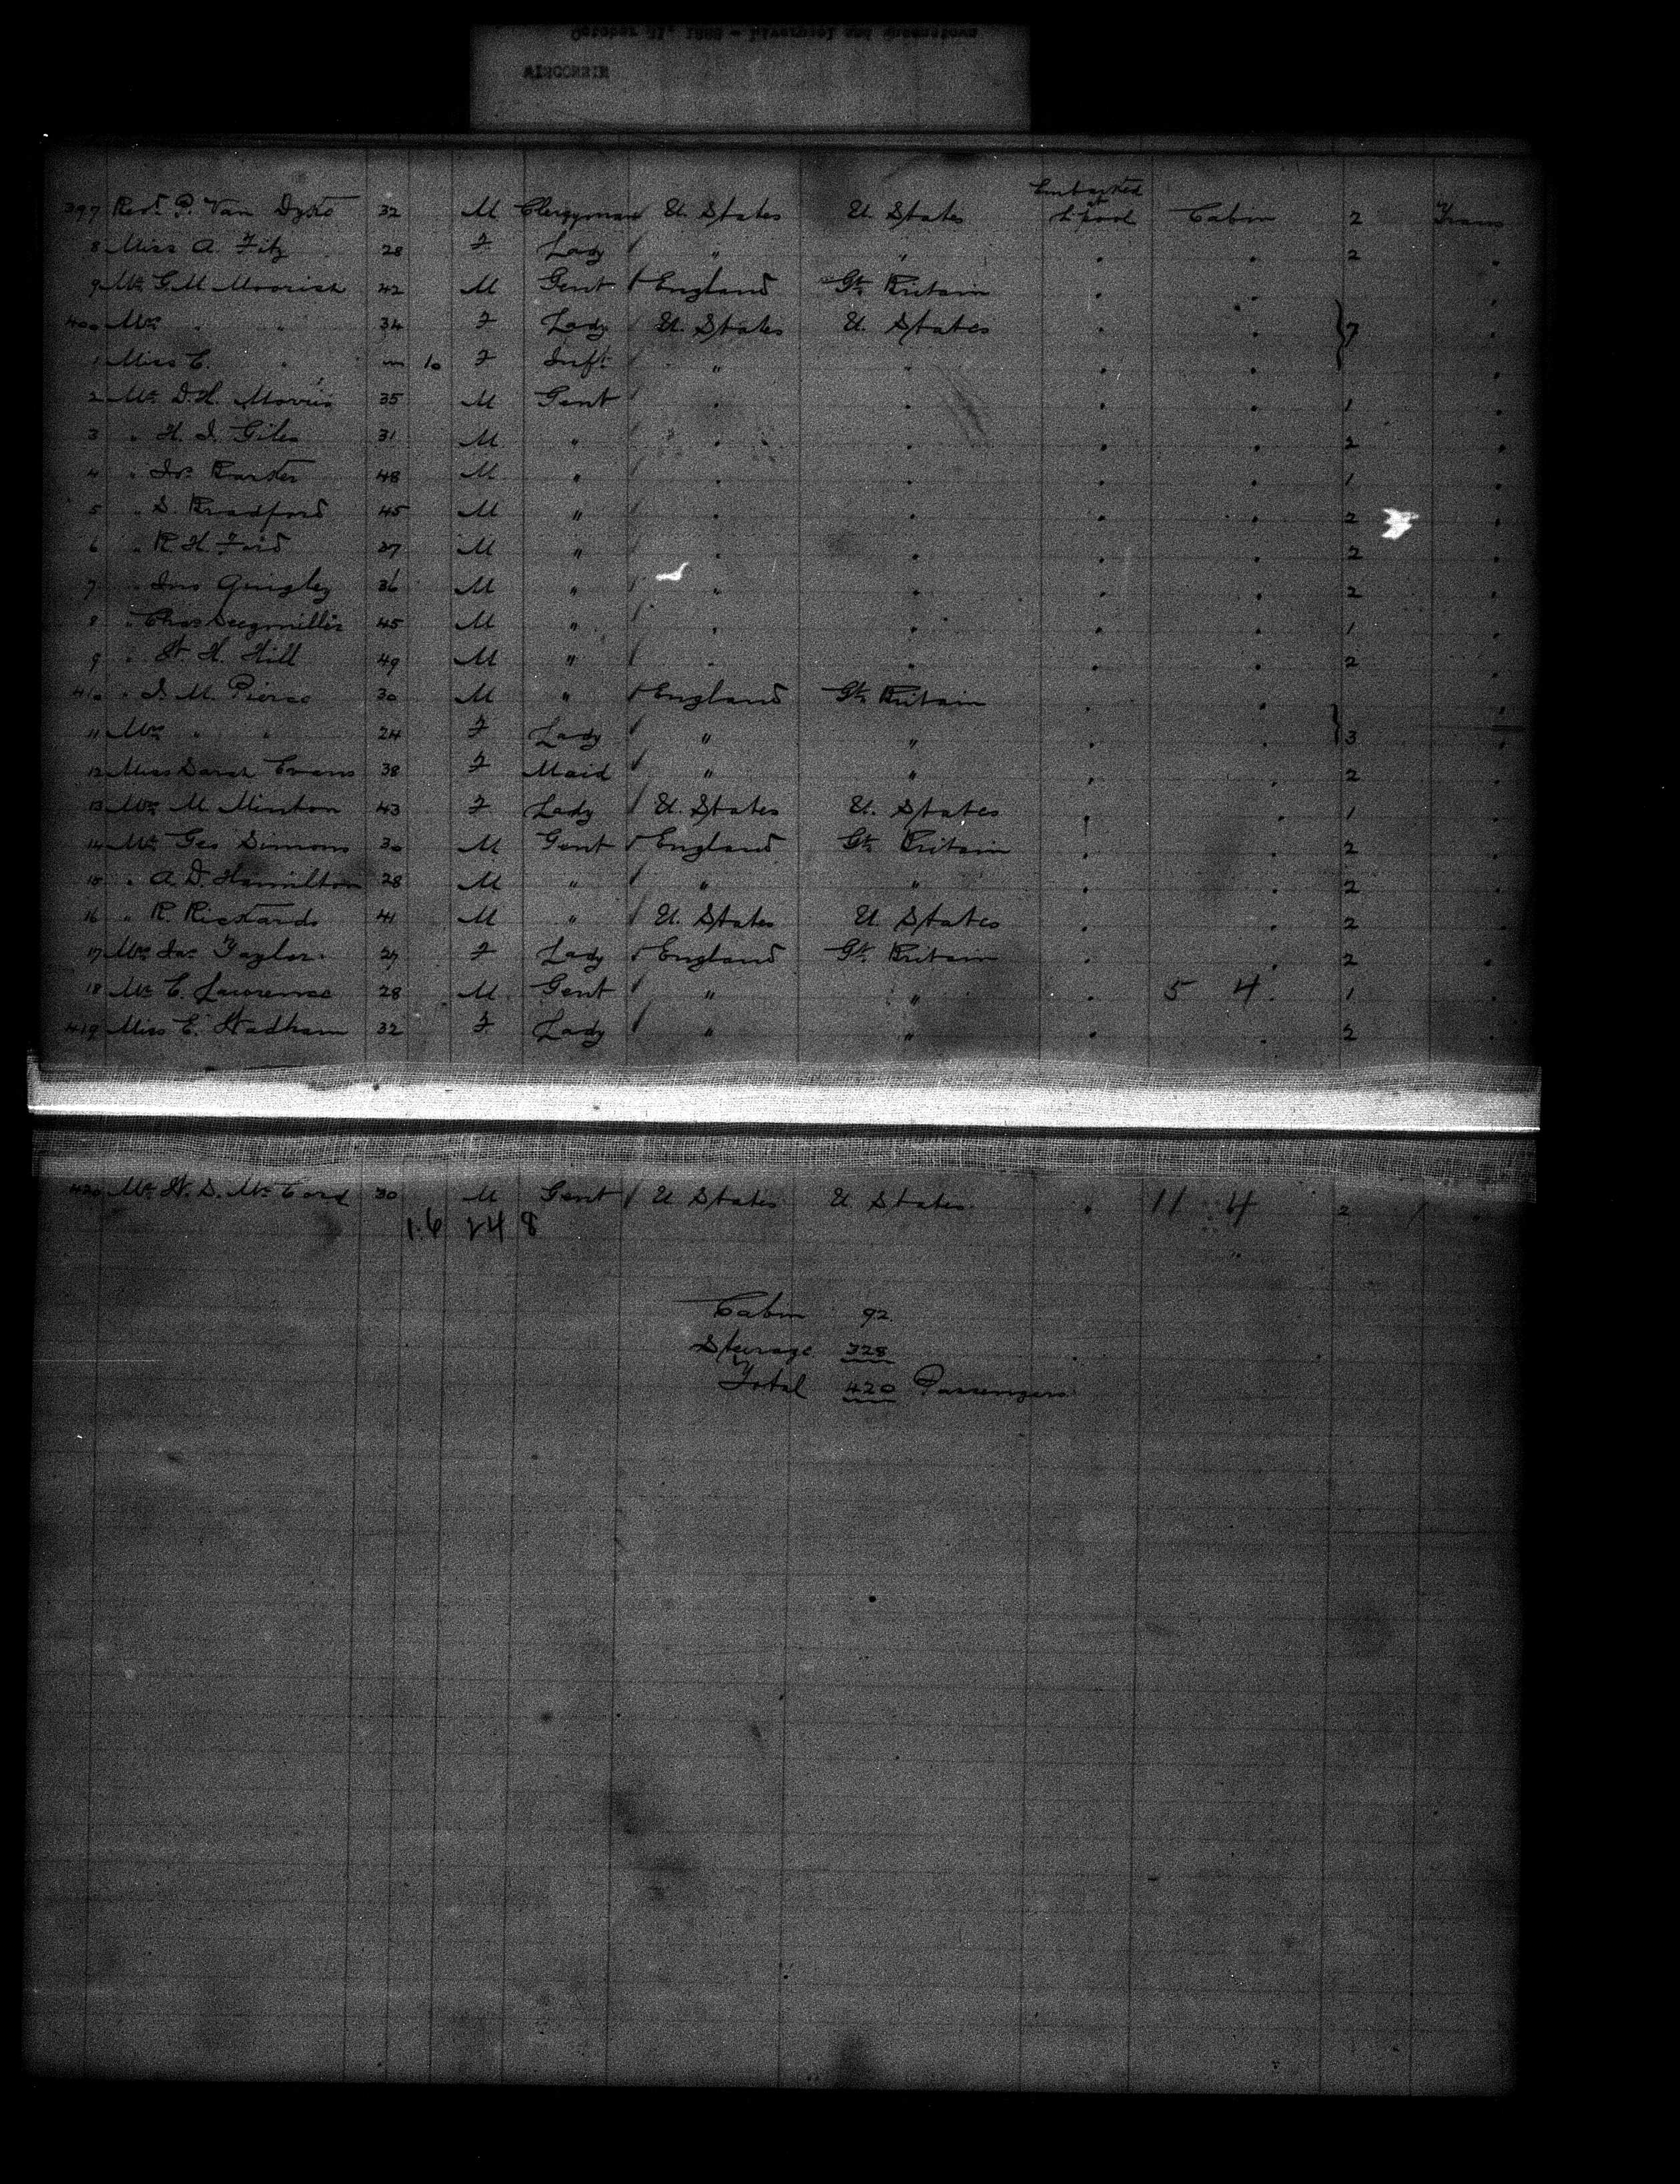 WISCONSIN
Embarked at
397 Revd. P. Van Dyke 32 M Clergyman U. States U. States L'pool Cabin 2 Trans
8 Miss A. Fitz 28 F Lady " " " " 2 "
9 Mr. G. M. Moorish 42 M Gent England Gt. Britain " "
400 Mrs " " 34 F Lady U. States U. States " " 7
1 Miss C. " 10 F Inft. " " " " "
2 Mr. D. H. Morris 35 M Gent " " " " 1 "
3 " H. I. Giles 31 M " " " " " 2 "
4 " Barker 48 M " " " " " 1 "
5 " S. Bradford 45 M " " " " " 2 "
6 " R. H. Ford 27 M " " " " " 2 "
7 " Jno Quigley 36 M " " " " " 2 "
8 " Chas Seegmiller 45 M " " " " " 1 "
9 " W. H. Hill 49 M " " " " " 2 "
410 " J. M. Pierce 30 M " England Gt. Britain " "
11 Mrs " " 24 F Lady " " " " 3 "
12 Miss Sarah Evans 38 F Maid " " " " 2 "
13 M. Minton 43 F Lady U. States U. States " " 1 "
14 Mr. Geo Simons 30 M Gent England Gt. Britain " " 2 "
15 " A. D. Hamilton 28 M " " " " " 2 "
16 " R. Rickards 41 M " U. States U. States " " 2 "
17 Mrs Jas Taylor 27 F Lady England Gt. Britain " " 2 "
18 Mr. C. Lawrence 28 M Gent " " " 5 4 1 "
419 Miss E. Wadham 32 F Lady " " " " 2 "
420 Mr. W. S. McCord 30 M Gent U States U States " 11 4 2 "
16 24 8
Cabin 92
Steerage 328
Total 420 Passengers